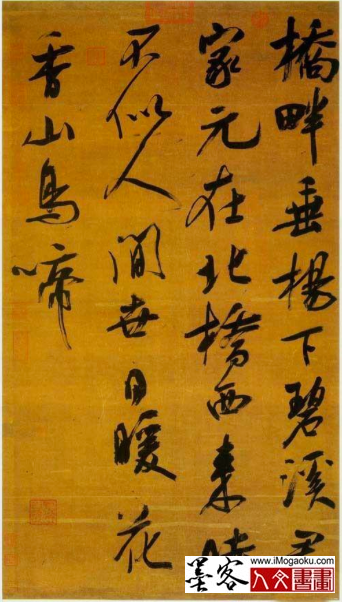 橋畔垂楊下碧溪君
家元在北橋西來時
不似人間世日暖花
香山鳥啼
墨客
www.iMogaoku.com
人文書畫